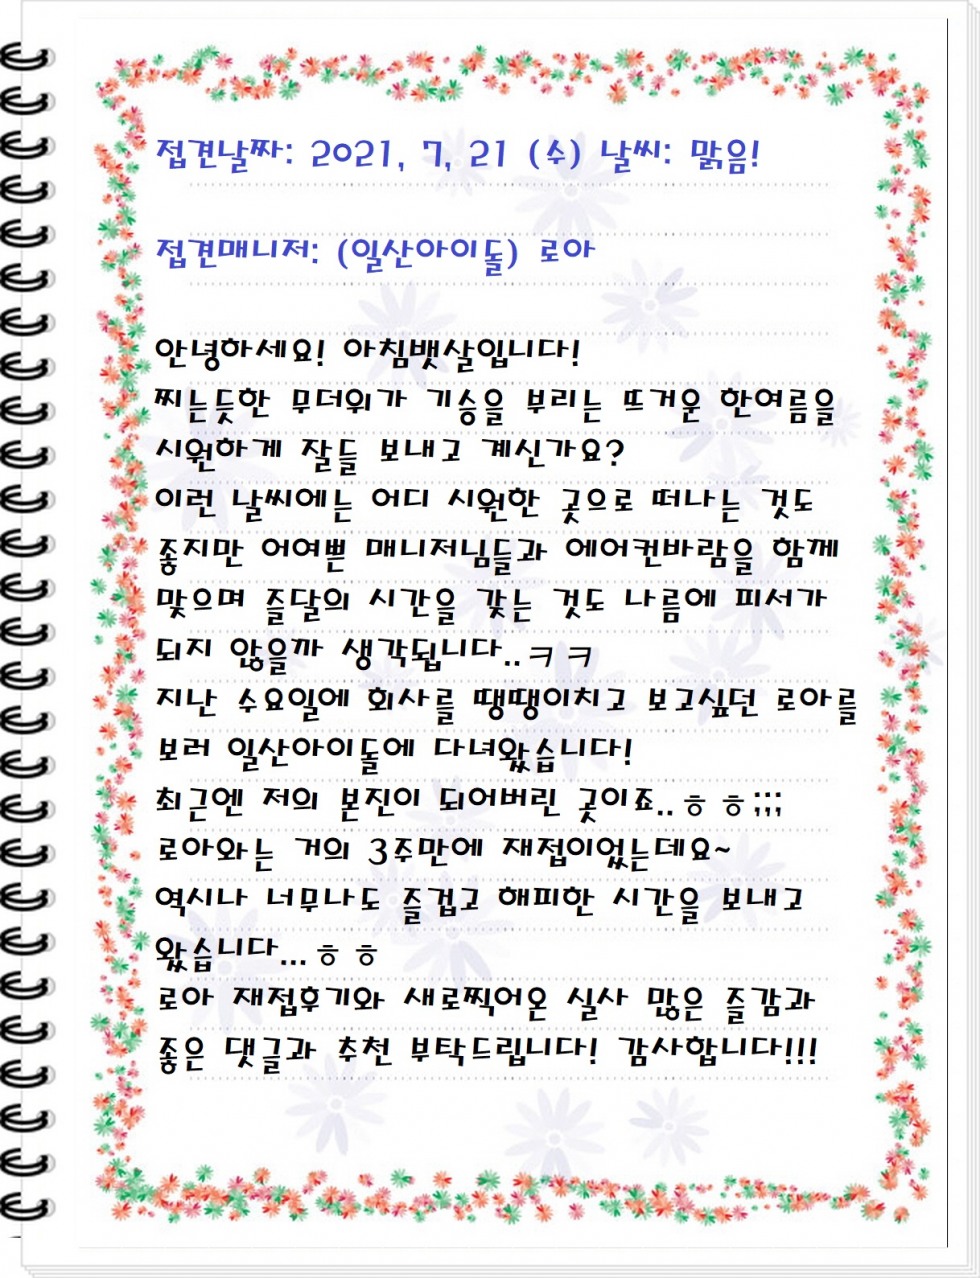 접견날짜: 2021, 7, 21 (수) 날씨: 맑음!
접견매니저: (일산아이돌) 로아
안녕하세요! 아침뱃살입니다!
찌는듯한 무더위가 기승을 부리는 뜨거운 한여름을
시원하게 잘들 보내고 계신가요?
이런 날씨에는 어디 시원한 곳으로 떠나는 것도
좋지만 어여쁜 매니저님들과 에어컨바람을 함께
맞으며 즐달의 시간을 갖는 것도 나름에 피서가
되지 않을까 생각됩니다..ㅋㅋ
지난 수요일에 회사를 땡땡이치고 보고싶던 로아를
보러 일산아이돌에 다녀왔습니다!
최근엔 저의 본진이 되어버린 곳이죠..ㅎㅎ;;;
로아와는 거의 3주만에 재접이었는데요~
역시나 너무나도 즐겁고 해피한 시간을 보내고
왔습니다...ㅎㅎ
로아 재접후기와 새로찍어온 실사 많은 즐감과
좋은 댓글과 추천 부탁드립니다! 감사합니다!!!